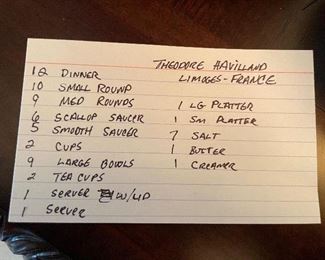 THEODORE HAVILLAND
LIMOGES-FRANCE
12 DINNER
10 SMALL ROUND
9 MED ROUNDS
6 SCALLOP SAUCER
5 SMOOTH SAUCER
2 CUPS
9 LARGE BOWLS
2 TEA CUPS
1 SERVER W/LID
1 SERVER
1 LG PLATTER
1 SM PLATTER
7 SALT
1 BUTTER
1 CREAMER